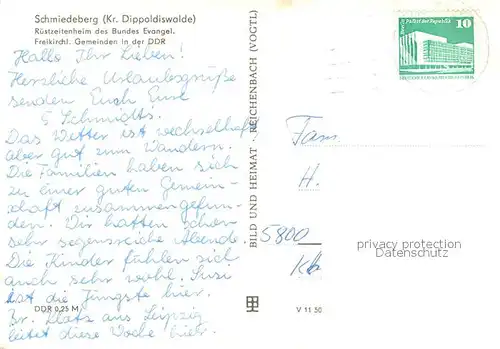 Schmiedeberg (Kr. Dippoldiswalde)
Rüstzeitenheim des Bundes Evangel.
Freikirchl. Gemeinden in der DDR
Hallo Ihr Lieben!
Herzliche Urlaubsgrüße
senden Euch Eure
5 Schmidtls.
Das Wetter ist wechselhaft
aber gut zum Wandern.
Die Familien haben sich
zu einer guten Gemein-
schaft zusammengefun-
den. Wir hatten schon
sehr segensreiche Abende.
Die Kinder fühlen sich
auch sehr wohl. Susi
ist die Jüngste hier.
Br. Klatz aus Leipzig
leitet diese Woche hier.
DDR 0,25 M
BILD UND HEIMAT · REICHENBACH (VOGTL)
Berlin, Palast der Republik
10
Fam.
H.
5800
privacy protection
Datenschutz
V 11 50